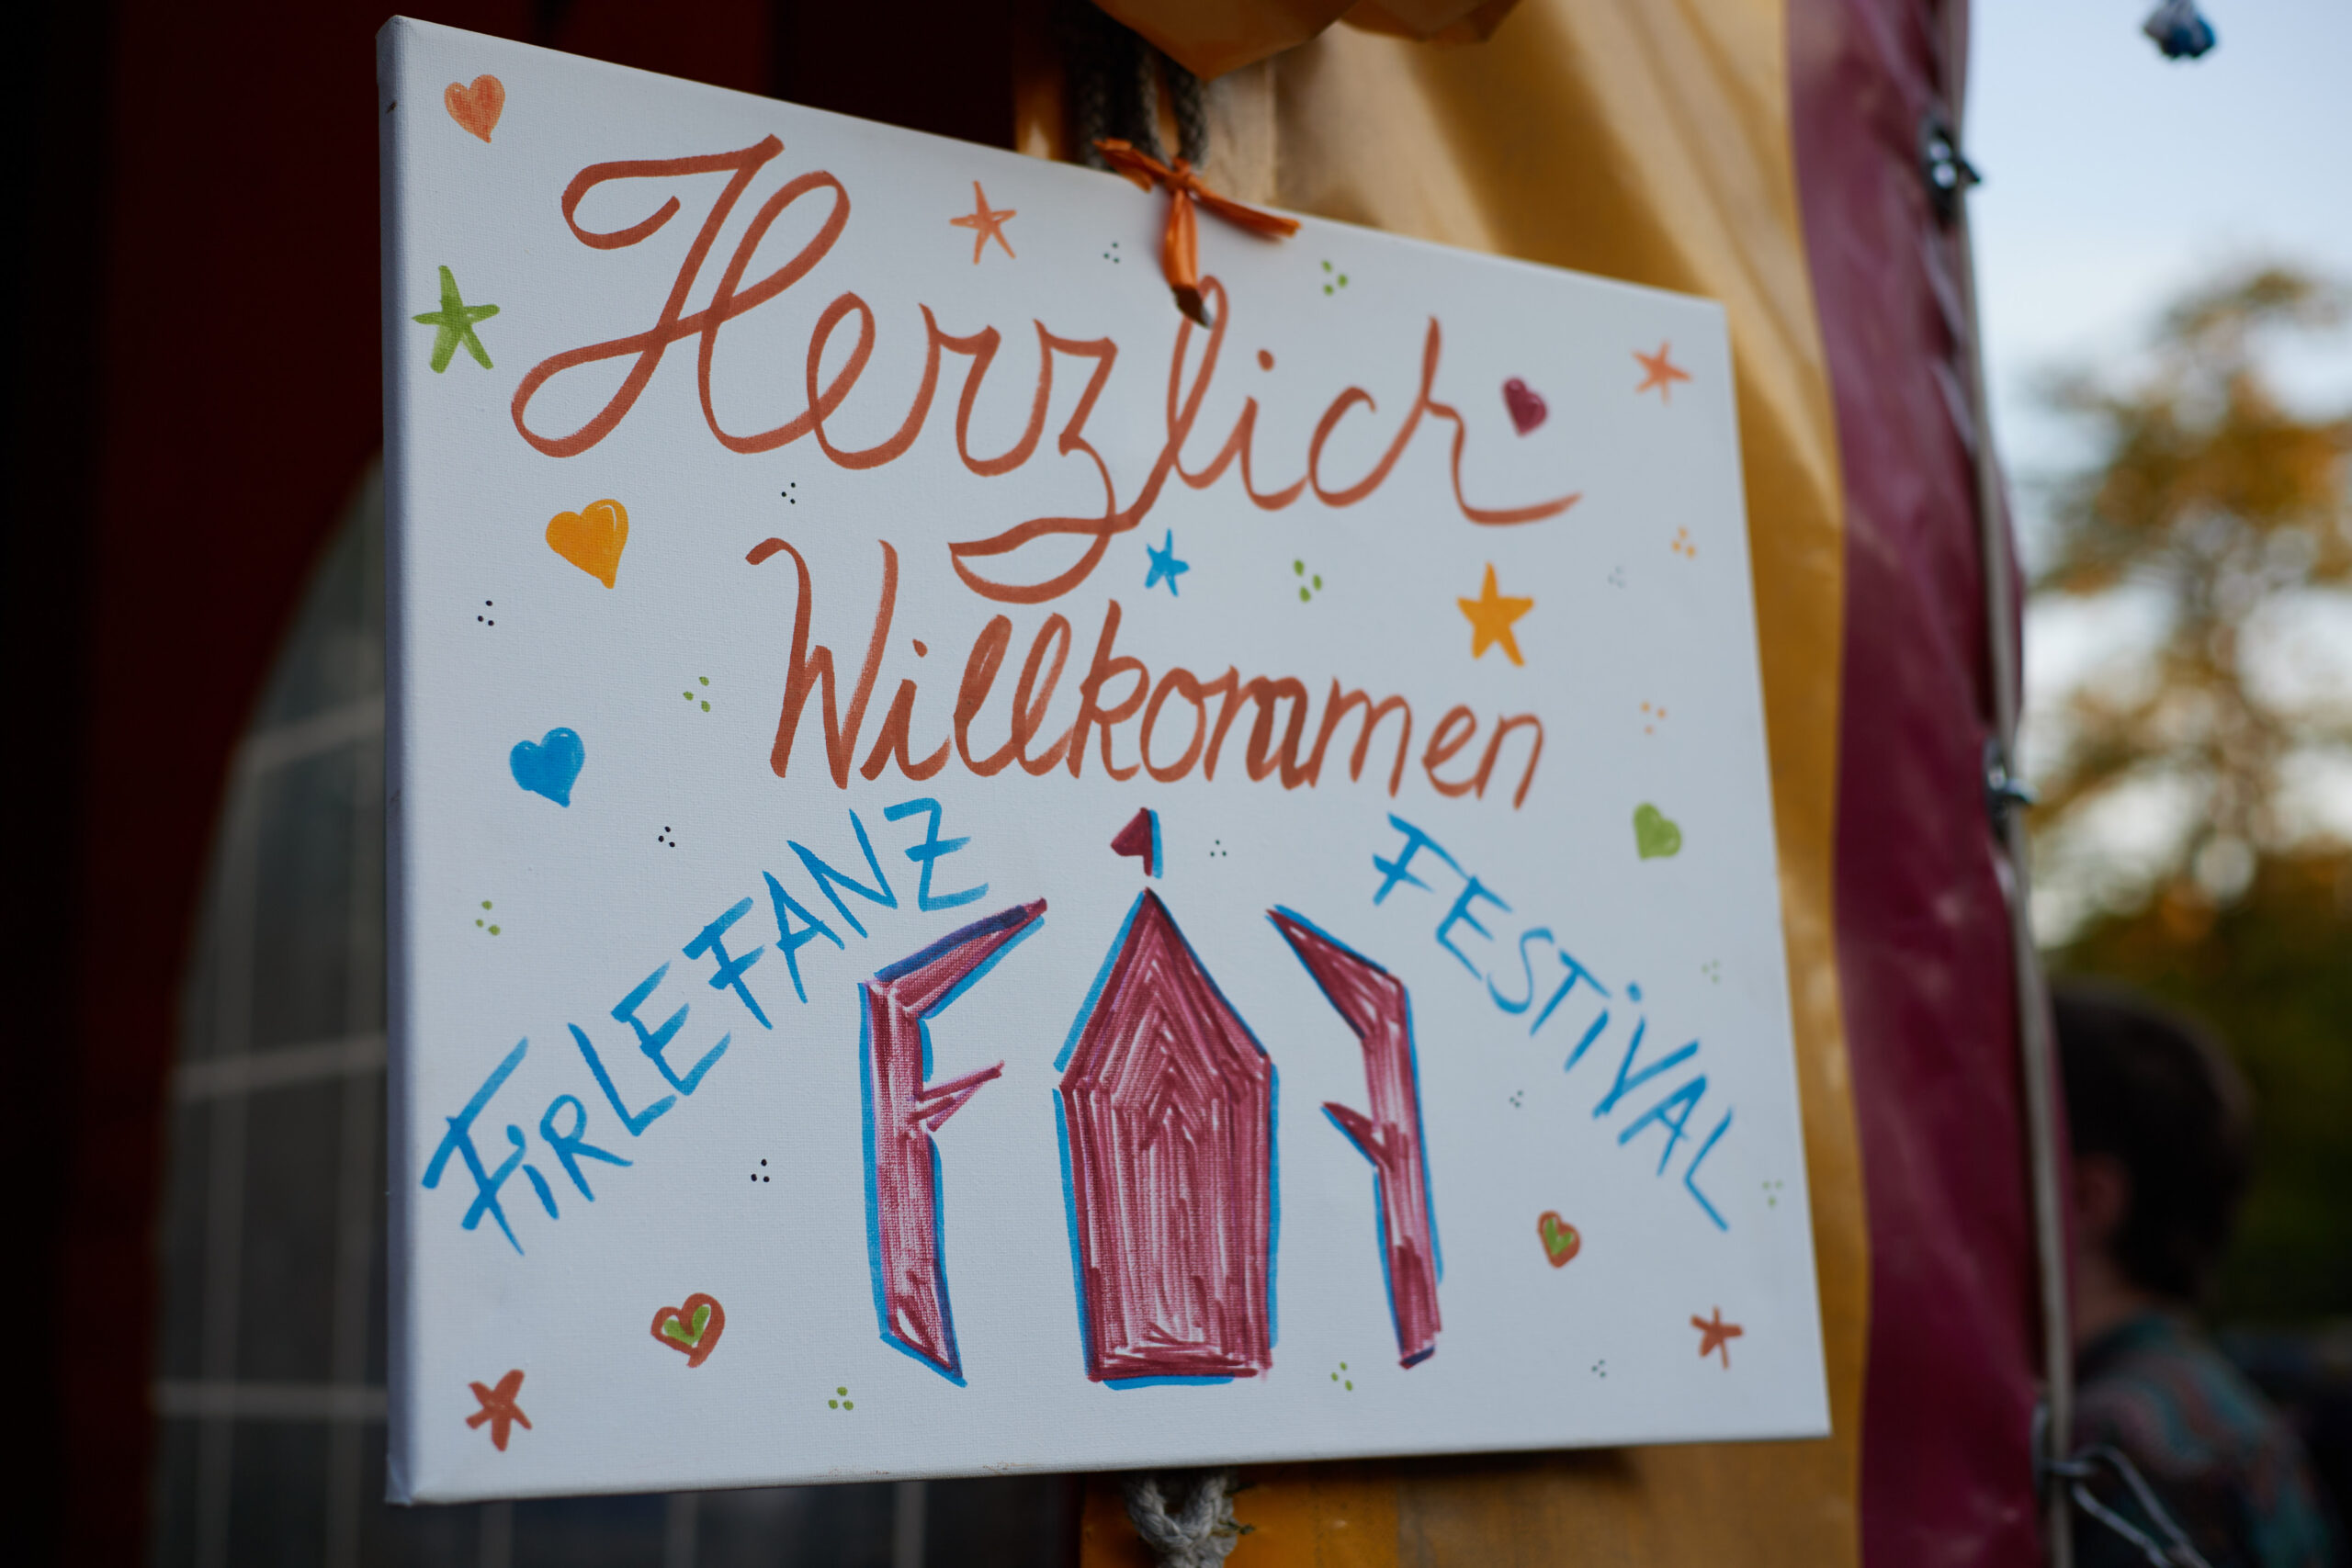 Herzlich
Willkommen
FiRLEFANZ
FESTiVAL